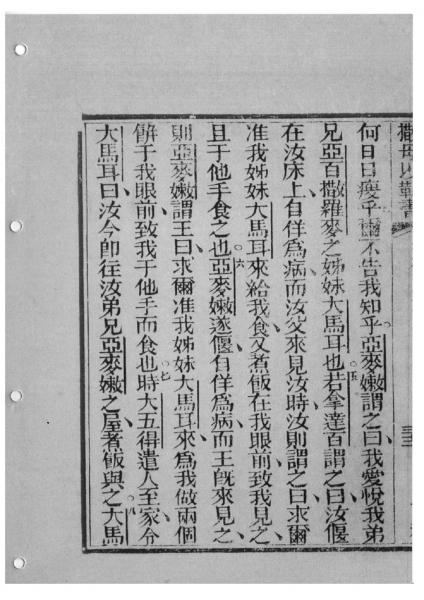 撒母以勒書
何日日瘦乎爾不告我知乎亞麥嫩謂之曰我愛悅我弟
兄亞百撒羅麥之姊妹大馬耳也○五若拿達百謂之曰汝偃
在汝床上自佯為病而汝父來見汝時汝則謂之曰求爾
准我姊妹大馬耳來給我食又煮飯在我眼前致我見之
且于他手食之也○六亞麥嫩遂偃自佯為病而王既來見之
則亞麥嫩謂王曰求爾准我姊妹大馬耳來為我做兩個
餅于我眼前致我于他手而食也○七時大五得遣人至家令
大馬耳曰汝今卽往汝弟兄亞麥嫩之屋煮飯與之○八大馬